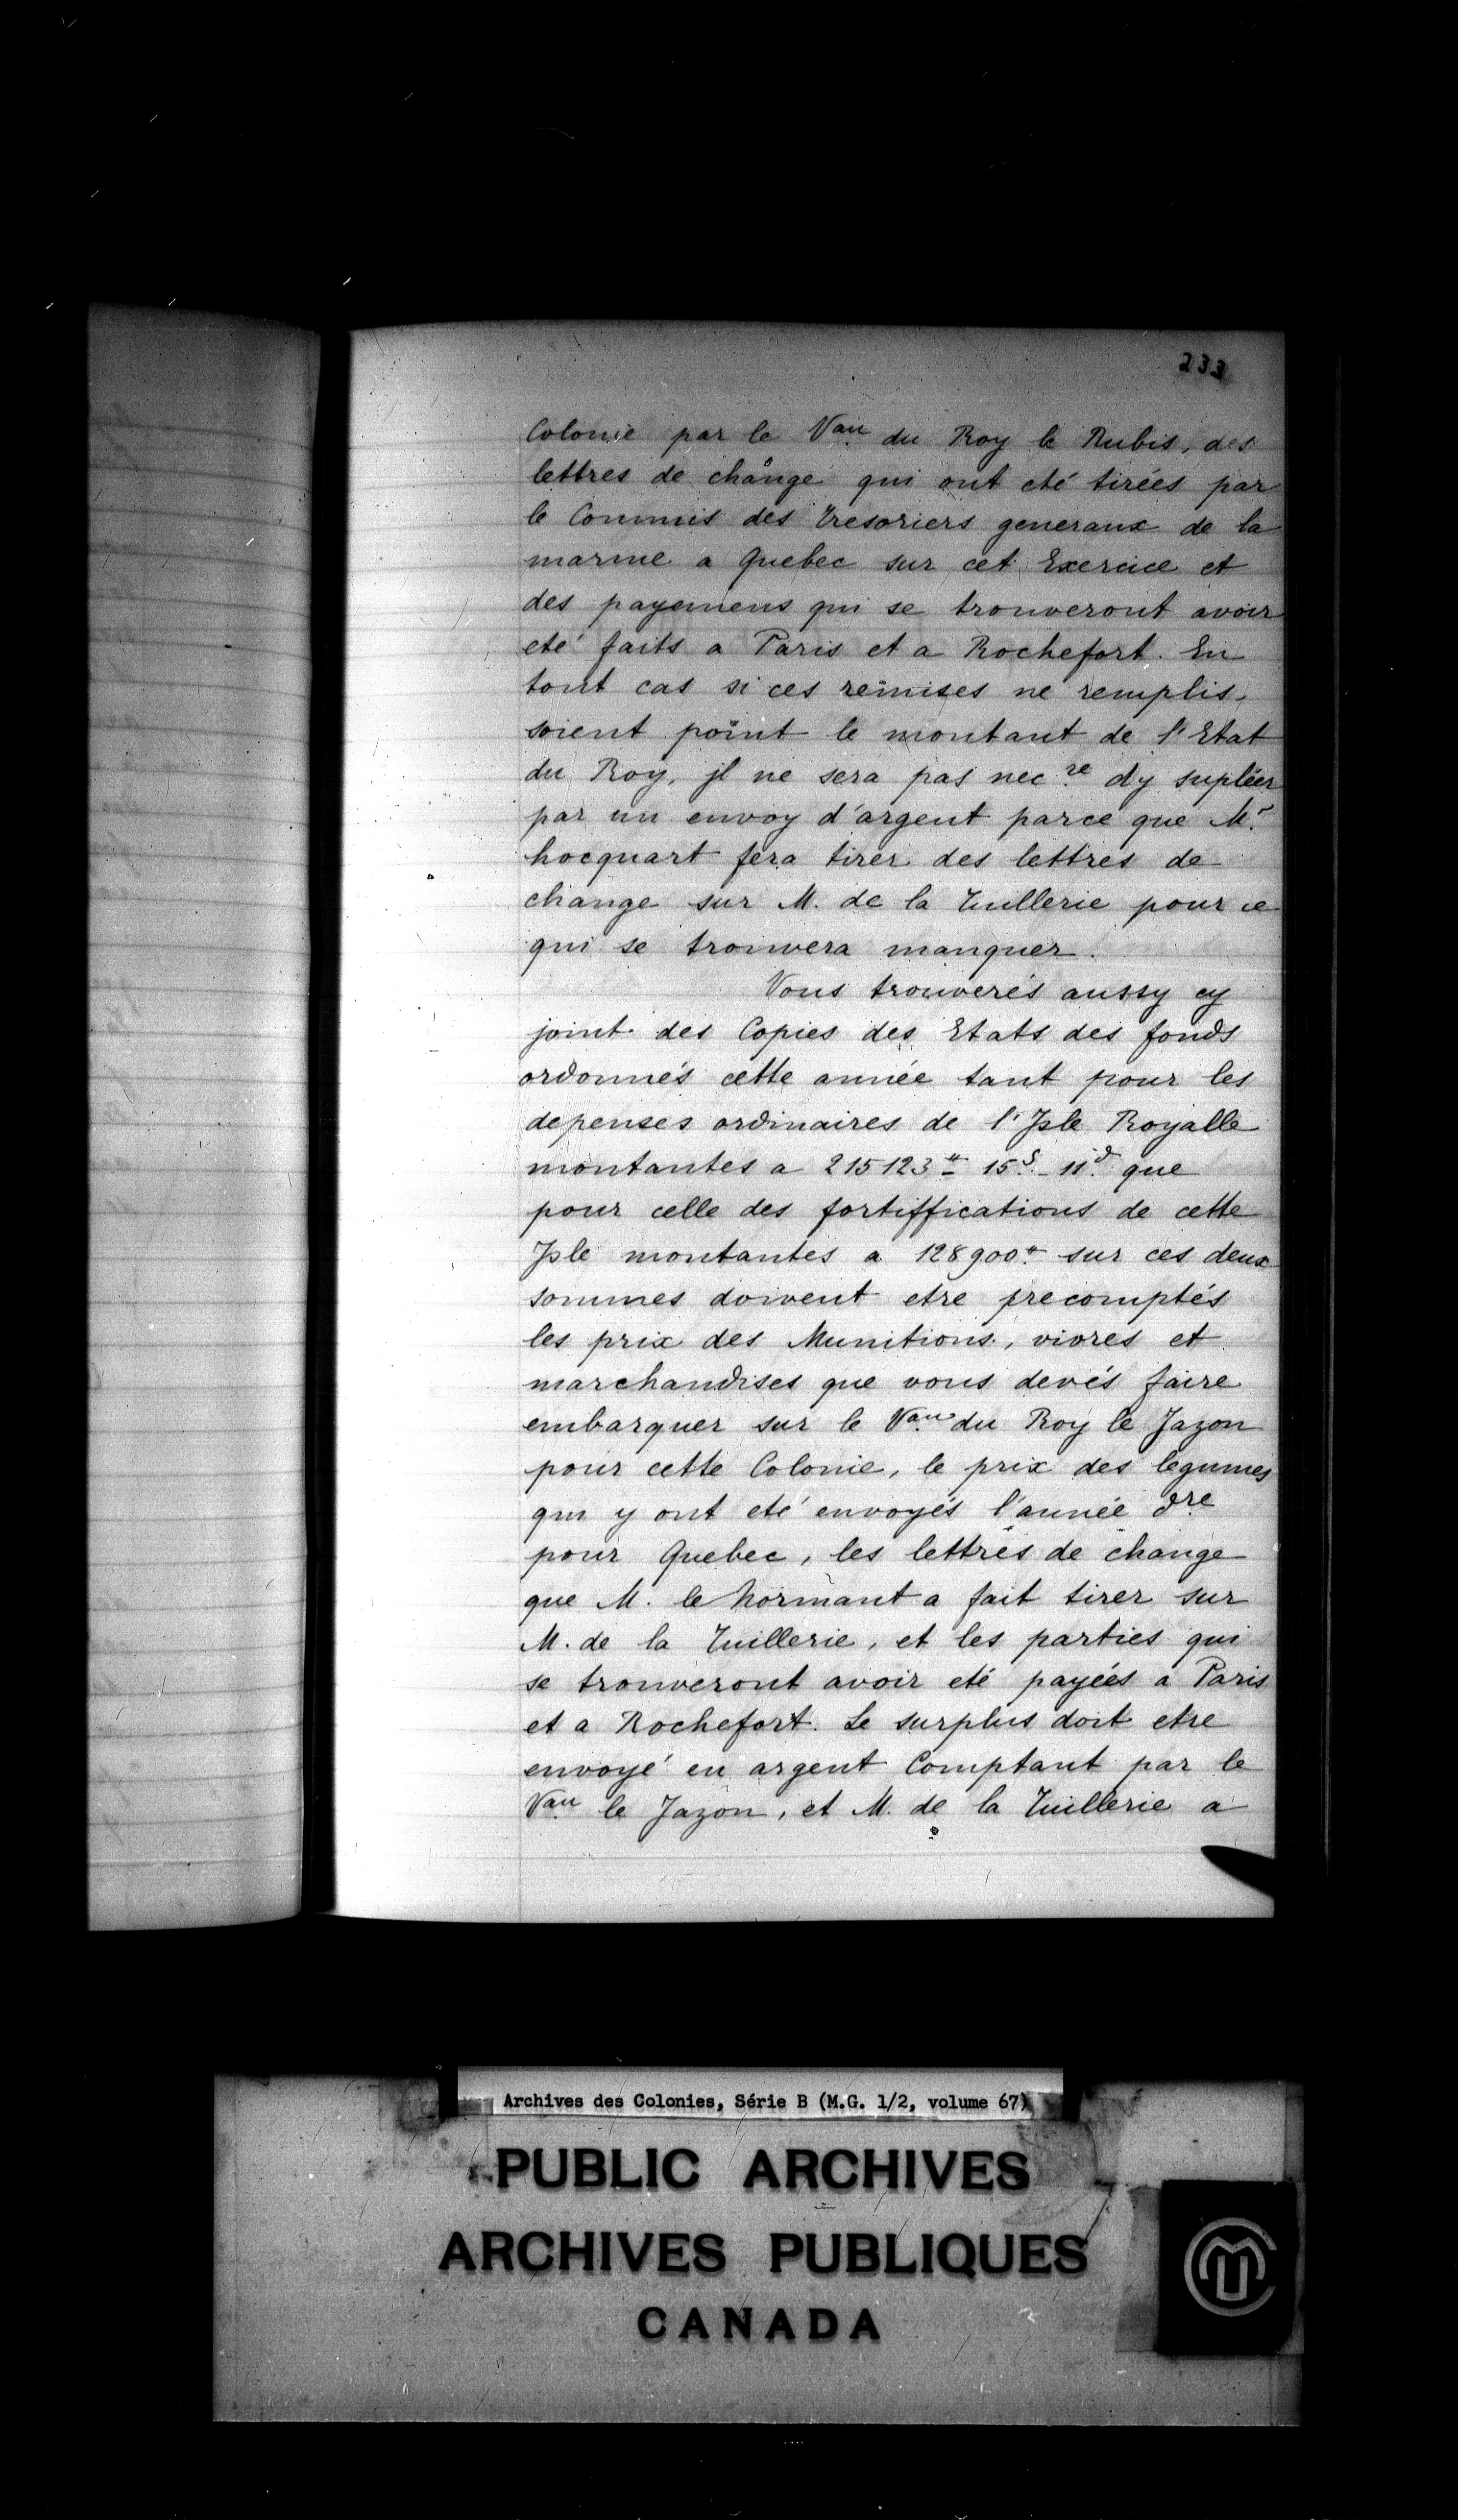 233
Colonie par le Vau du Roy le Rubis, des
lettres de change qui ont eté tirées par
le Commis des tresoriers generaux de la
marine a Quebec sur cet Exercice et
des payemens qui se trouveront avoir
eté faits a Paris et a Rochefort. En
tout cas si ces remises ne remplis,
soient point le montant de l'Etat
du Roy, jl ne sera pas necre d'y supléer
par un envoy d'argent parce que Mr
hocquart fera tirer des lettres de
change sur M. de la Tuillerie pour ce
qui se trouvera manquer.
Vous trouverés aussy cy
joint des Copies des Etats des fonds
ordonnés cette année tant pour les
depenses ordinaires de l'Jsle Royalle
montantes a 215123tt 15s 11d que
pour celle des fortiffications de cette
Jsle montantes a 128900tt sur ces deux
sommes doivent etre precomptés
les prix des Munitions, vivres et
marchandises que vous devés faire
embarquer sur le Vau du Roy le Jazon
pour cette Colonie, le prix des legumes
qui y ont eté envoyés l'année dre
pour Quebec, les lettres de change
que M. le Normant a fait tirer sur
M. de la Tuillerie, et les parties qui
se trouveront avoir eté payées a Paris
et a Rochefort. Le surplus doit etre
envoyé en argent Comptant par le
Vau le Jazon, et M. de la Tuillerie a
Archives des Colonies, Série B (M.G. 1/2, volume 67)
PUBLIC ARCHIVES
ARCHIVES PUBLIQUES
CANADA